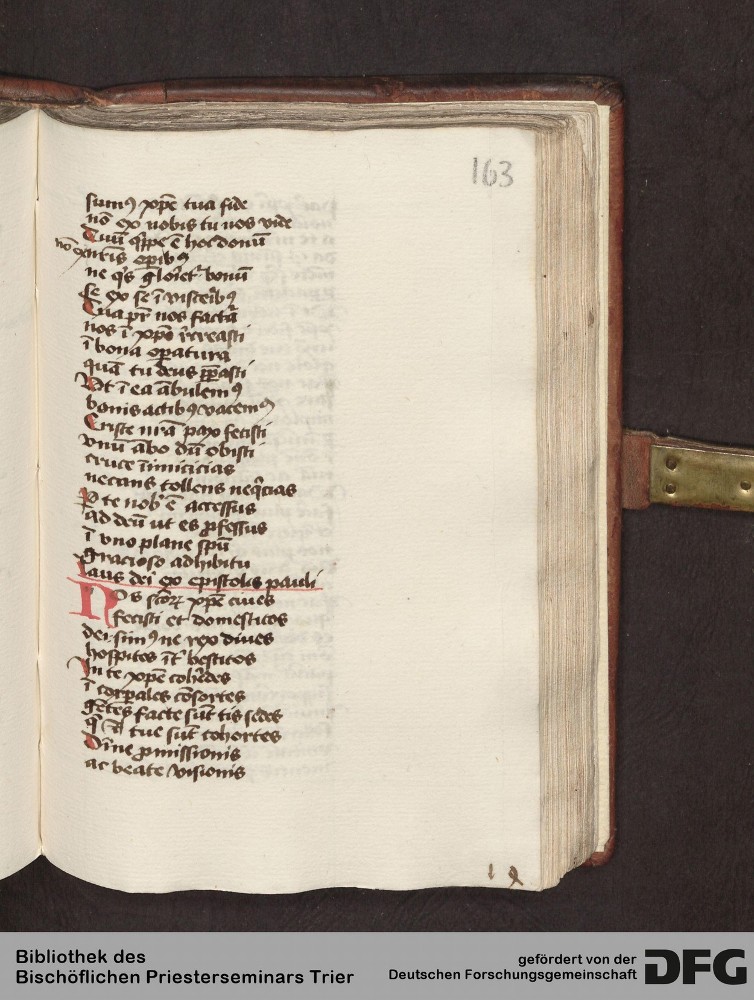 163
sumꝰ xp̄e tua fide
nō ex nobis tu nos vide
Tuū qͥppe ē hoc donū
nō ex nr̄is oꝑibꝰ
ne qͥs glorietᷣ bonū
se ex se ī visceribꝰ
Tua pr̄ nos factā
nos ī xp̄o
ī bona operatura
quā tu deus p̄parasti
Vt ī ea ābulemꝰ
bonis actibꝰ vacemꝰ
Criste nr̄a pax fecisti
vnū ābo dū obisti
cruce īimicicias
necans tollens neqͥcias
P te nobᷤ ē accessus
ad deū ut es ꝓfessus
ī vno plane spū
gracioso adhibitu
laus dei ex epistolis pauli
Nos scōꝝ xp̄e ciues
fecisti et domesticos
dei simꝰ ne rex diues
hospites īt besticos
In te xp̄e coh̓edes
ī corꝑales cōsortes
gētes facte sūt tis sedes
tue sūt cohortes
Dn̄e ꝓmissionis
ac beate visionis
Bibliothek des
Bischöflichen Priesterseminars Trier
gefördert von der
Deutschen Forschungsgemeinschaft
DFG